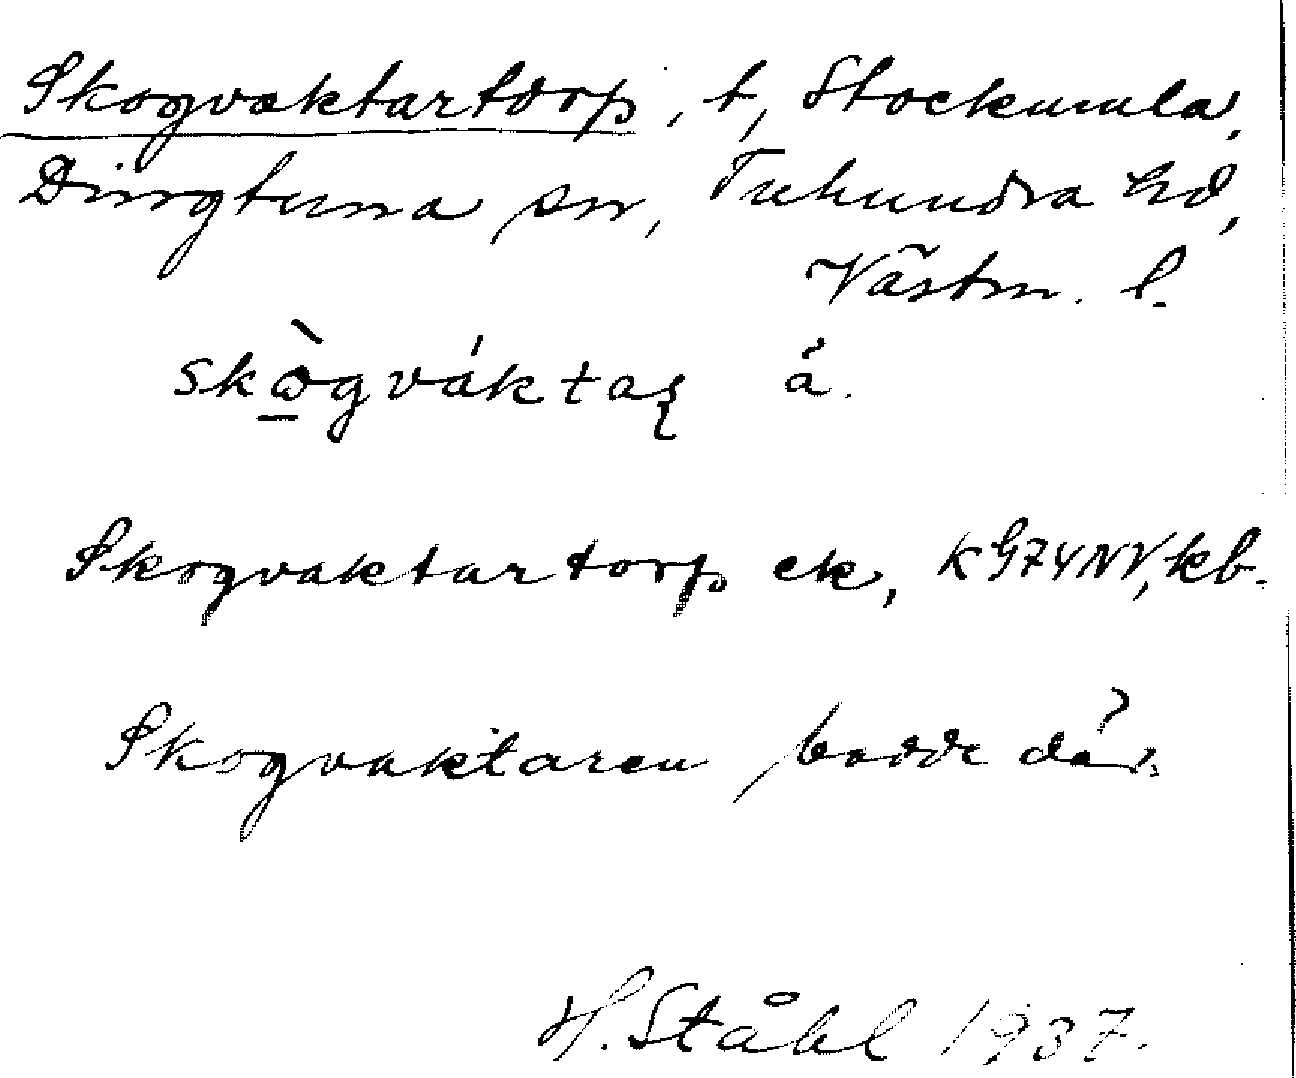 Skogvaktartorp, t, Stockumla,
Dingtuna sn, Tuhundra hd,
Västm. l.
skògváktaʂ å.
Skogvaktartorp ek, KG74NV, kb.
Skogvaktaren bodde där.
H. Ståhl 1937.